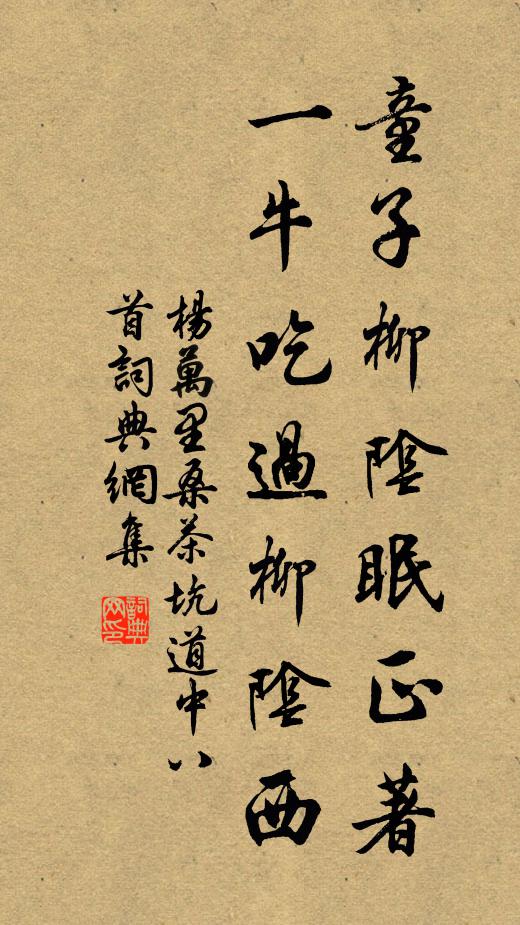 童子柳陰眠正著
一牛吃過柳陰西
楊萬里桑茶坑道中八
首詞典網集
詞典
网印